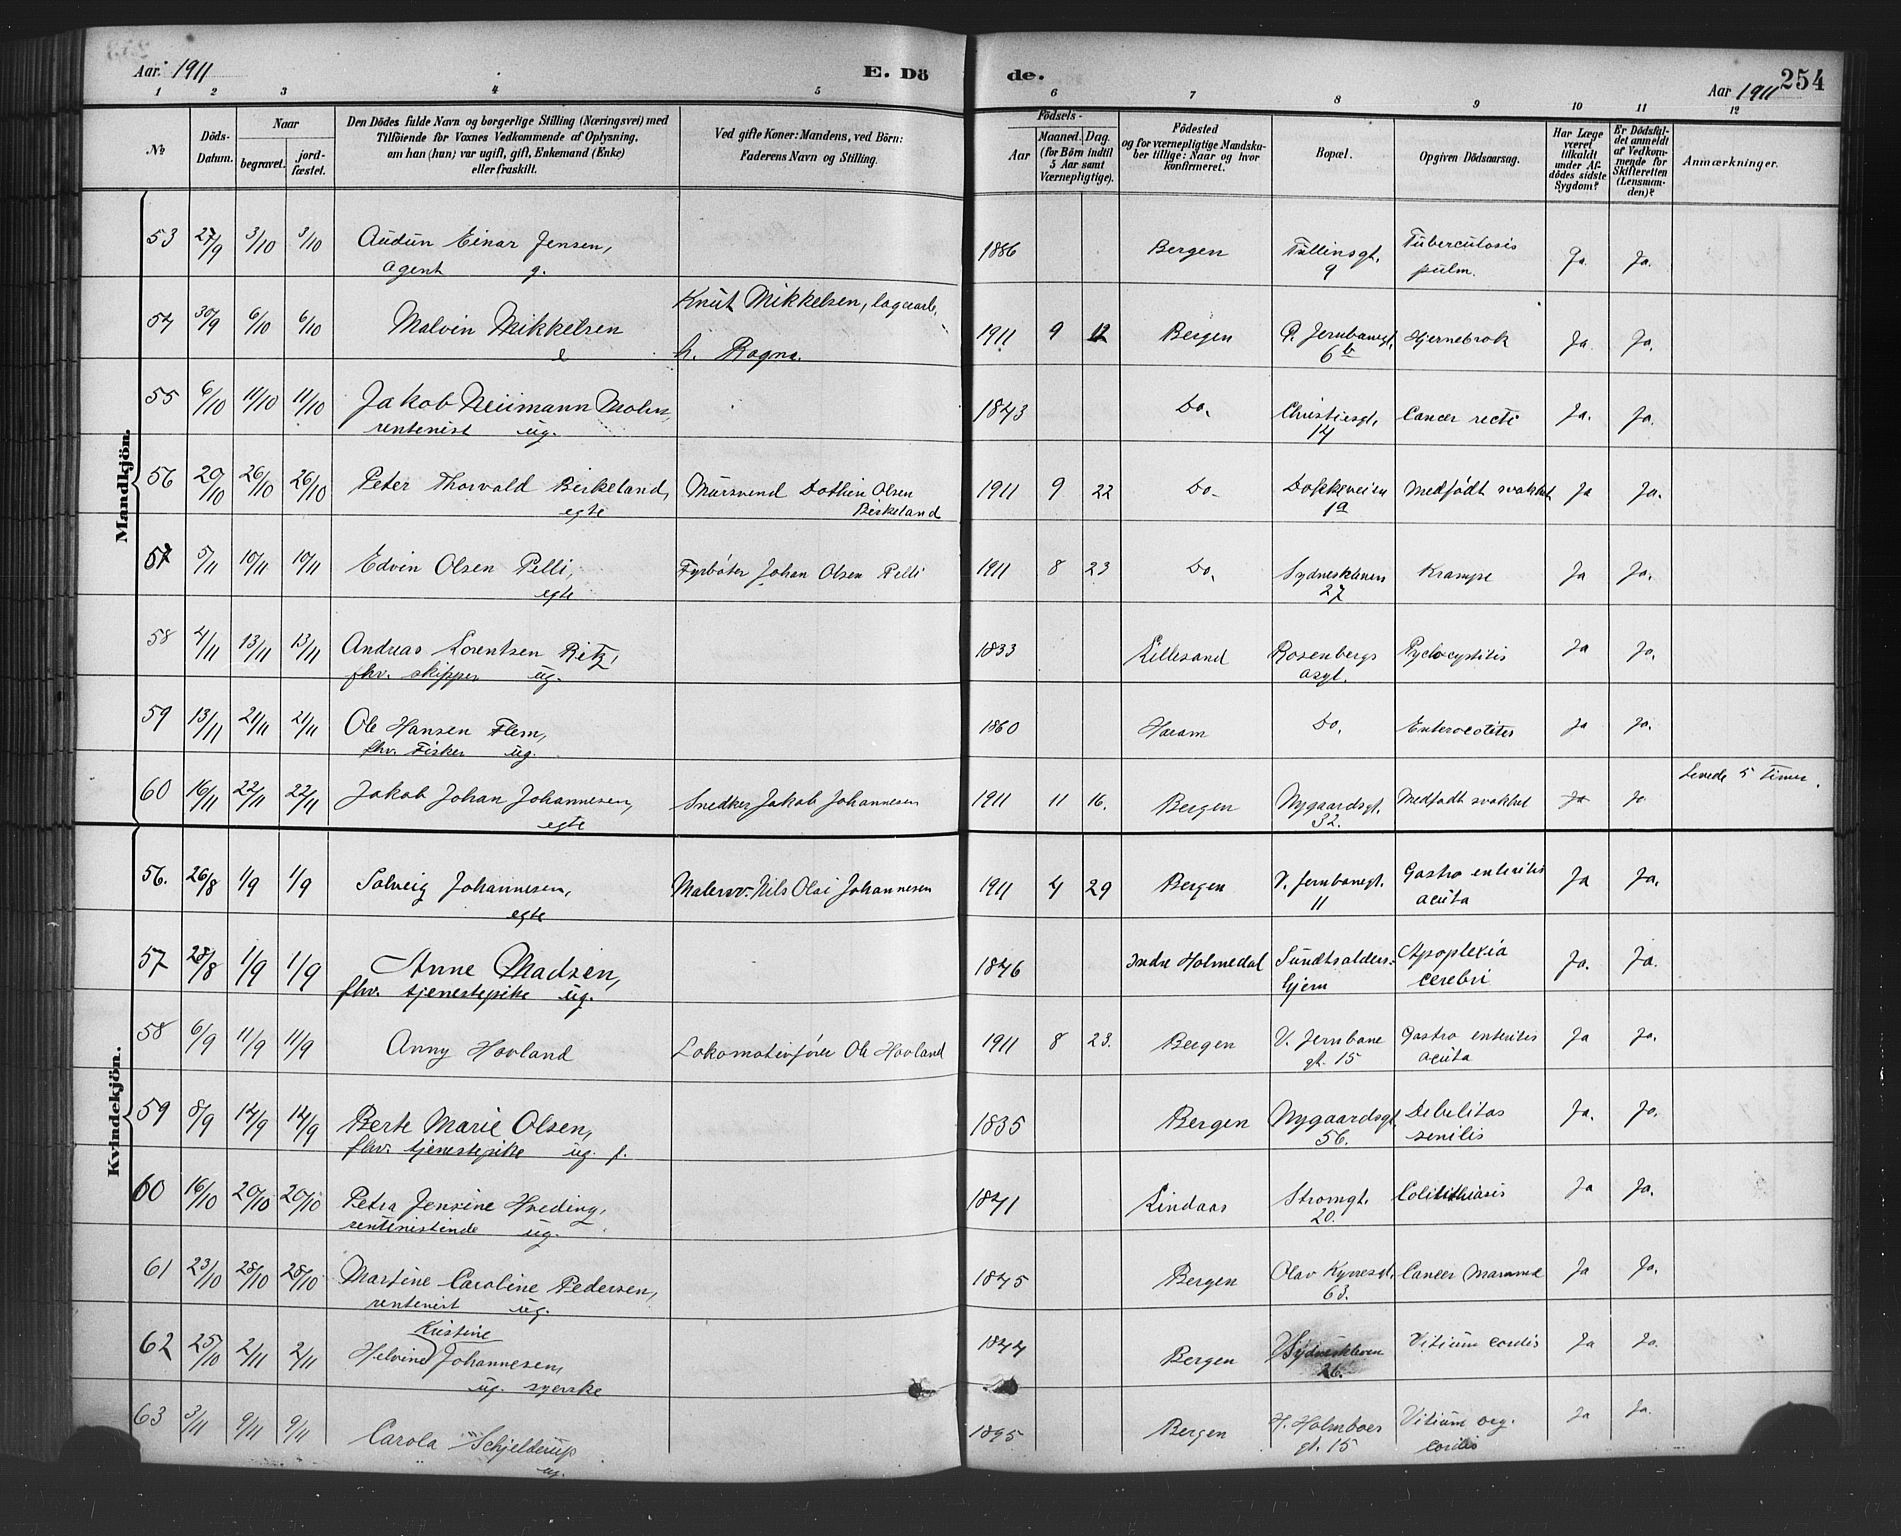 Aar. 1911 E. Dö de. Aar 1911 254
1 2 3 4 5 6 7 8 9 10 11 12
№
Döds-Datum.
Naar begravet. jord-fæstet.
Den Dödes fulde Navn og borgerlige Stilling (Næringsvei) med Tilföiende for Voxnes Vedkommende af Oplysning, om han (hun) var ugift, gift, Enkemand (Enke) eller fraskilt.
Ved gifte Koner: Mandens, ved Börn: Faderens Navn og Stilling.
Födsels- Aar Maaned. Dag. (for Börn indtil 5 Aar samt Værnepligtige).
Födested og for værnepligtige Mandskaber tillige: Naar og hvor konfirmeret.
Bopæl.
Opgiven Dödsaarsag.
Har Læge været tilkaldt under Afdödes sidste Sygdom?
Er Dödsfaldet anmeldt af Vedkommende for Skifteretten (Lensmanden)?
Anmærkninger.
Mandkjön.
53 27/9 3/10 3/10 Audun Einar Jensen, 1886 Bergen Tullinsgt. 9 Tuberculosis pulm. Ja. Ja.
agent g.
54 30/9 6/10 6/10 Malvin Mikkelsen Knut Mikkelsen, lagerarb. 1911 9 12 Bergen P. Jernbanegt. 6b Hjernebrok Ja Ja.
e h. Ragna.
55 6/10 11/10 11/10 Jakob Neumann Mohn, 1843 Do. Christiesgt. 14 Cancer recti Ja. Ja.
rentenist ug.
56 20/10 26/10 26/10 Peter Thorvald Birkeland, Mursvend Dothin Olsen Birkeland 1911 9 22 Do- Dokkeveien 1a Medfödt svakhet Ja Ja.
egte
57 5/11 10/11 10/11 Edvin Olsen Pelli, Fyrböter Johan Olsen Pelli 1911 8 23 Do. Sydneskleven 27 Krampe Ja Ja.
egte
58 4/11 13/11 13/11 Andreas Lorentsen Ritz, 1833 Lillesand Rosenbergs asyl. Pyelocystitis Ja Ja.
fhv. skipper ug.
59 13/11 21/11 21/11 Ole Hansen Flem, 1860 Haram Do. Enterocolitis Ja Ja.
fhv. Fisker ug.
60 16/11 22/11 22/11 Jakob Johan Johannesen, Snedker Jakob Johannesen 1911 11 16. Bergen Nygaardsgt. 32. Medfödt svakhet Ja Ja Levede 5 Timer.
egte
Kvindekjön.
56. 26/8 1/9 1/9 Solveig Johannesen, Malersv. Nils Olai Johannesen 1911 4 29 Bergen V. Jernbanegt. 11 Gastro enteritis acuta Ja Ja.
egte
57 28/8 1/9 1/9 Anne Madsen, 1846 Indre Holmedal Sundts alders-hjem Apoplexia cerebri Ja. Ja.
fhv. tjenestepike ug.
58 6/9 11/9 11/9 Anny Hovland Lokomotivförer Ole Hovland 1911 8 23. Bergen V. Jernbane gt. 15 Gastro enteritis acuta Ja Ja.
59 8/9 14/9 14/9 Berte Marie Olsen, 1835 Bergen Nygaardsgt. 56. Debilitas senilis Ja. Ja.
fhv. tjenestepike ug. f.
60 16/10 20/10 20/10 Petra Jensine Hveding, 1841 Lindaas Strømgt. 20. Colitithiasis Ja Ja.
rentenistinde ug.
61 23/10 28/10 28/10 Martine Caroline Pedersen, 1845 Bergen Olav Kyrresgt. 63. Cancer Mammæ Ja Ja.
rentenist ug.
62 25/10 2/11 2/11 Helvine Kristine Johannesen, 1844 Bergen Sydneskleven 26. Vitium cordis Ja Ja.
ug. syerske
63 3/11 9/11 9/11 Carola Schjelderup 1895 Bergen H. Holmboes gt. 15 Vitium org. cordis Ja Ja.
ug.